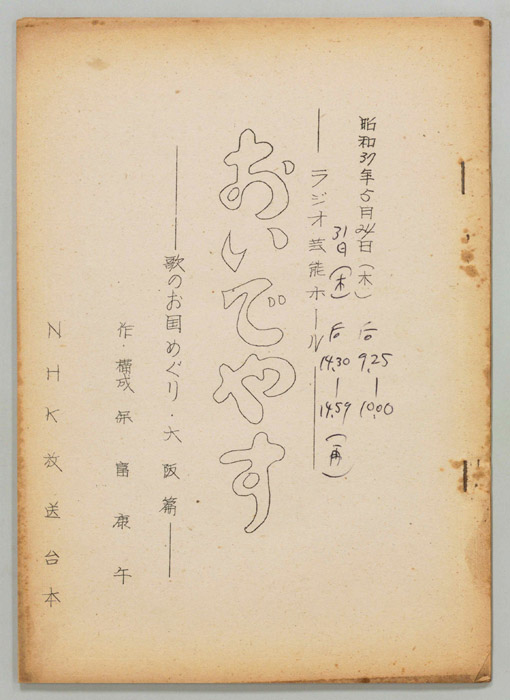 昭和37年5月24日(木) 后 9.25—10.00
31日(木) 后 14.30—14.59(再)
—ラジオ芸能ホール—
おいでやす
—歌のお国めぐり・大阪篇—
作・構成 保富康午
NHK放送台本